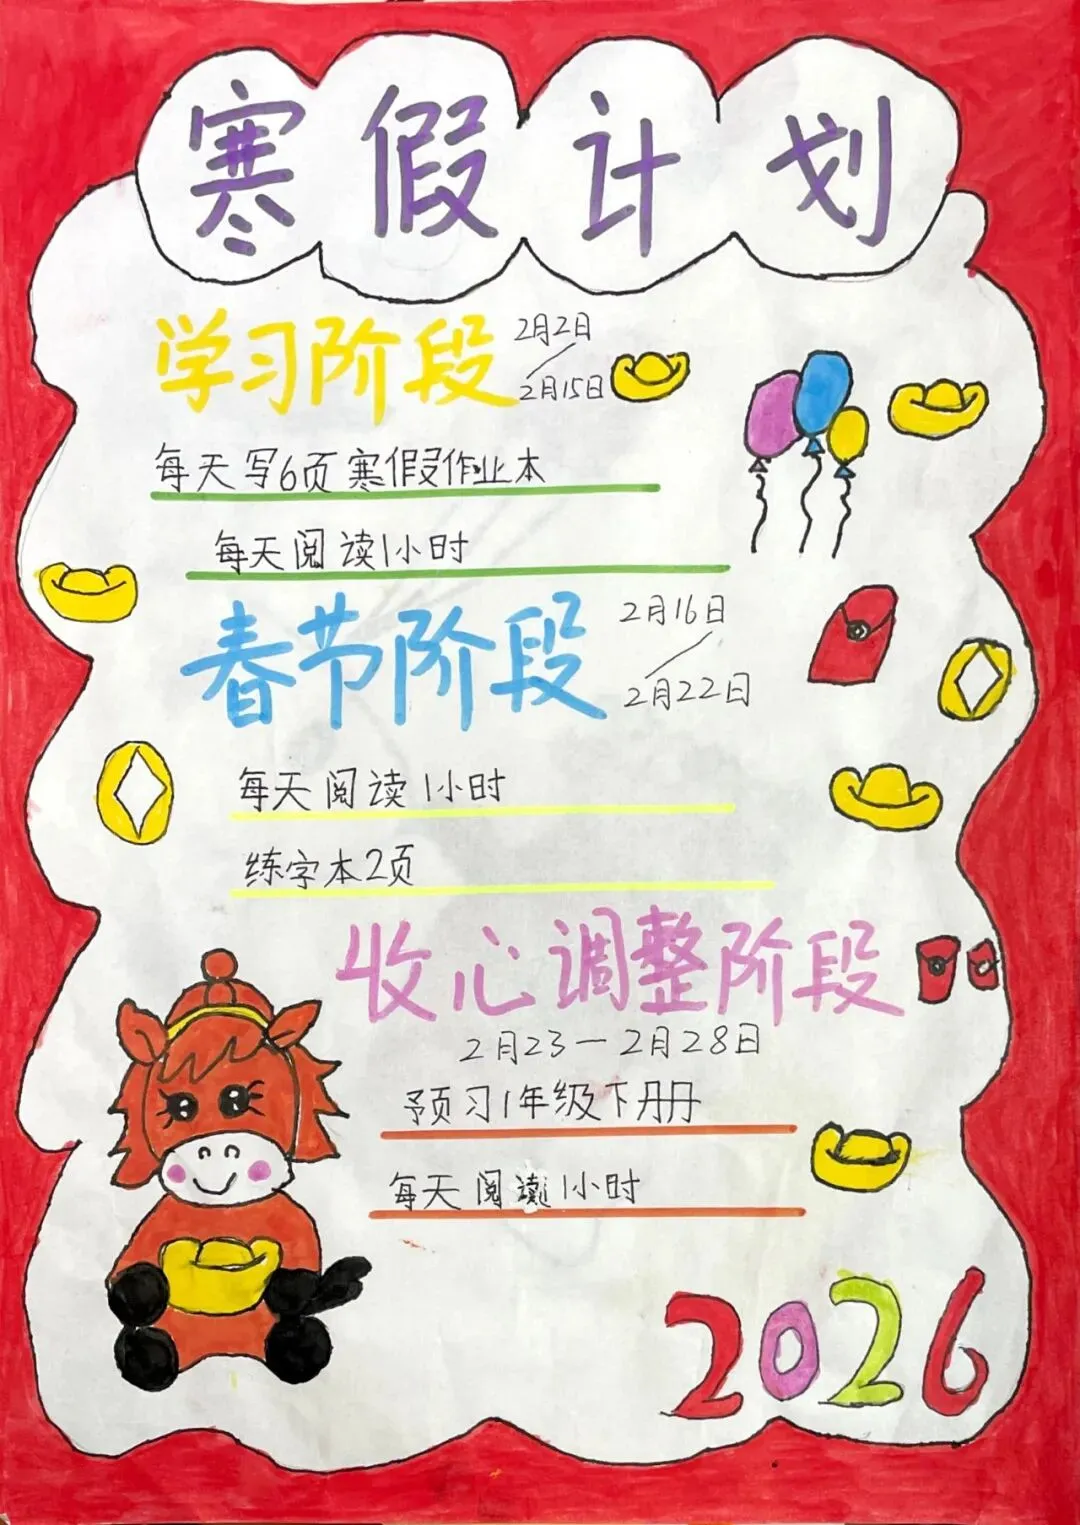 寒假计划
学习阶段
2月2日
2月15日
每天写6页寒假作业本
每天阅读1小时
春节阶段
2月16日
2月22日
每天阅读1小时
练字本2页
收心调整阶段
2月23一2月28日
预习1年级下册
每天阅读1小时
2026